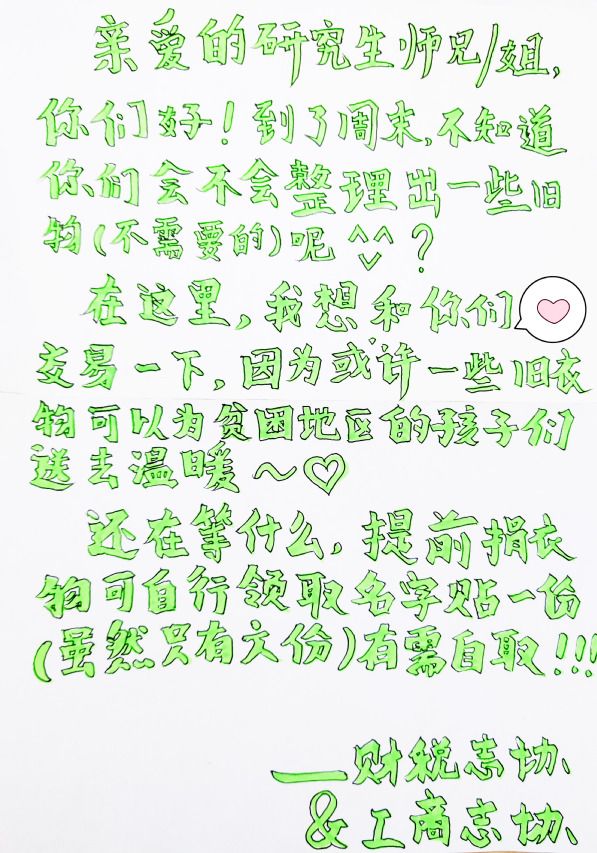 亲爱的研究生师兄/姐,
你们好!到了周末,不知道
你们会不会整理出一些旧
物(不需要的)呢^^?
在这里,我想和你们
交易一下,因为或许一些旧衣
物可以为贫困地区的孩子们
送去温暖~♡
还在等什么,提前捐衣
物可自行领取名字贴一份
(虽然只有六份)有需自取!!!
——财税志协、
&工商志协、